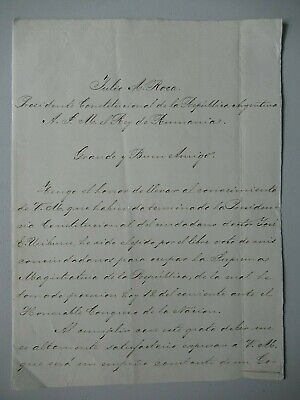 Julio A. Roca.
Presidente Constitucional de la República Argentina
A. S. M. el Rey de Rumania.
Grande y Buen Amigo:
Tengo el honor de llevar al conocimiento
de V. M. que habiendo terminado la Presiden-
cia Constitucional del ciudadano doctor José
E. Uriburu he sido elejido por el libre voto de mis
conciudadanos para ocupar la Suprema
Magistratura de la República, de la cual he
tomado posesion hoy 12 del corriente ante el
Honorable Congreso de la Nacion.
Al cumplir con este grato deber me
es altamente satisfactorio expresar a V. M.
que será un empeño constante de mi Go-